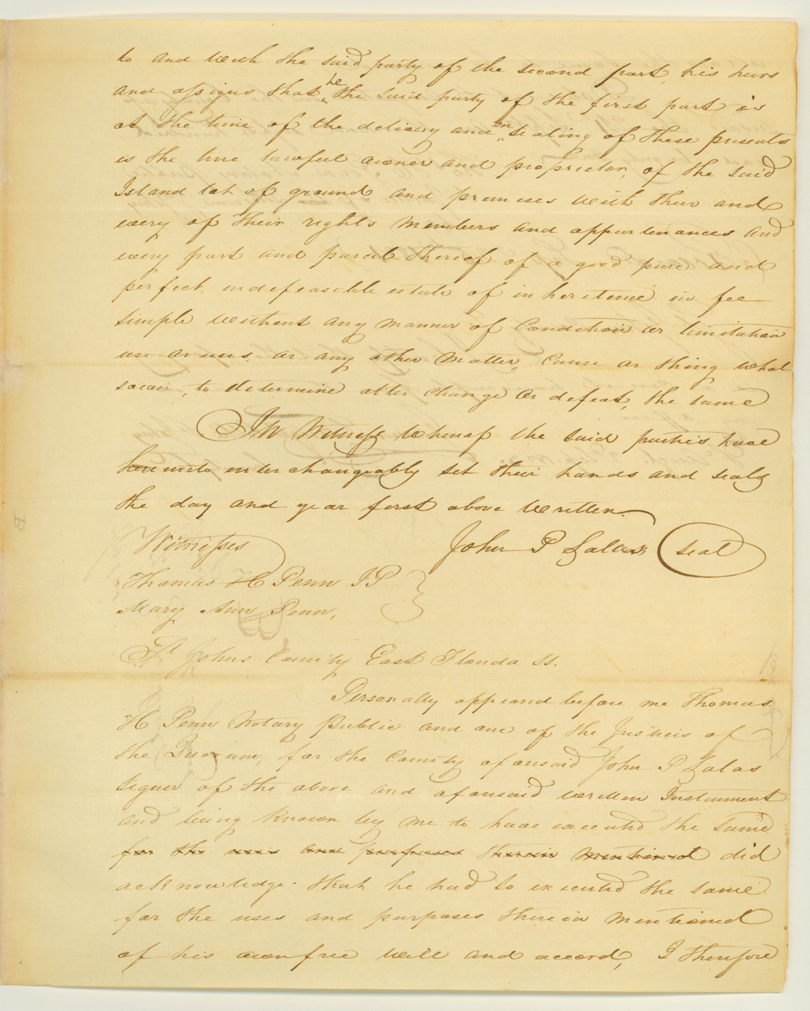 to and with the said party of the second part, his heirs
and assigns that he the said party of the first part is
at the time of the delivery and en sealing of these presents
is the true lawful owner and proprietor, of the said
Island lot of ground and premises with their and
every of their rights members and appurtenances and
every part and parcel thereof of a good pure and
perfect, indefeasible estate of inheritence in fee
simple without any manner of Condition or limitation
use or uses, or any other Matter, Cause or thing what
soever, to determine alter change or defeat, the same
In Witness whereof the said parties have
hereunto interchangeably set their hands and seals
the day and year first above written
Witnesses John P Zallas seal
Thomas H Penn J P
Mary Ann Penn,
St Johns County East Florida ss.
Personally appeared before me Thomas
H Penn Notary Public and one of the Justices of
the Quorum, for the County aforesaid John P Zalas
signer of the above and aforesaid written Instrument
and being known by me to have executed the same
for the uses and purposes therein mentioned did
acknowledge that he had so executed the same
for the uses and purposes therein mentioned
of his own free will and accord, I therefore